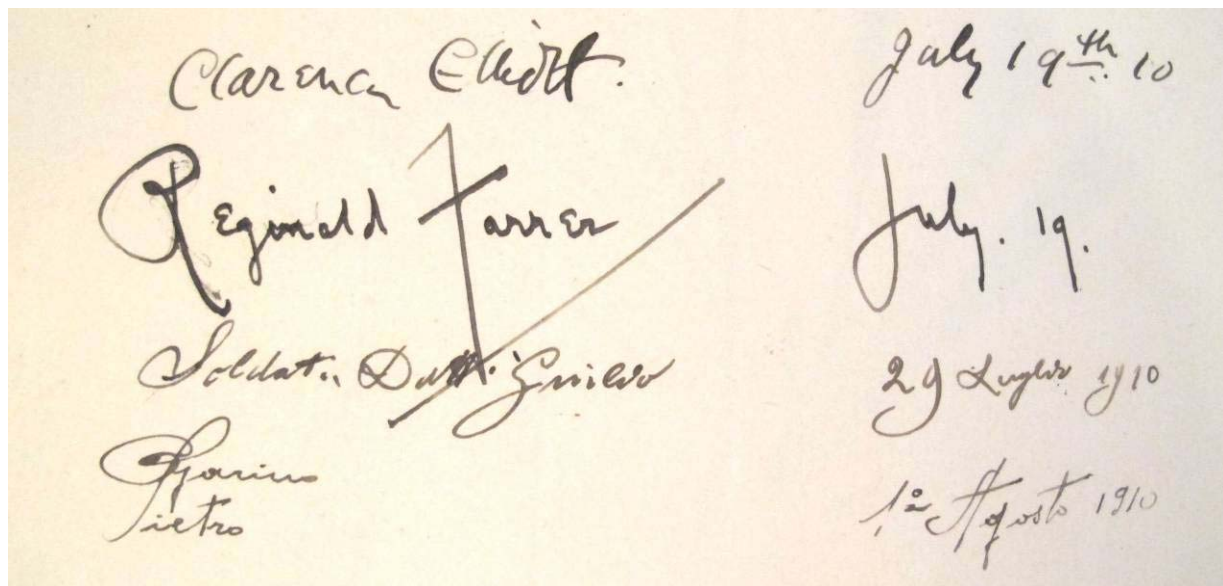 Clarence Elliott. July 19th. 10
Reginald Farrer July. 19.
Soldato 29 Luglio 1910
Pietro 1º Agosto 1910